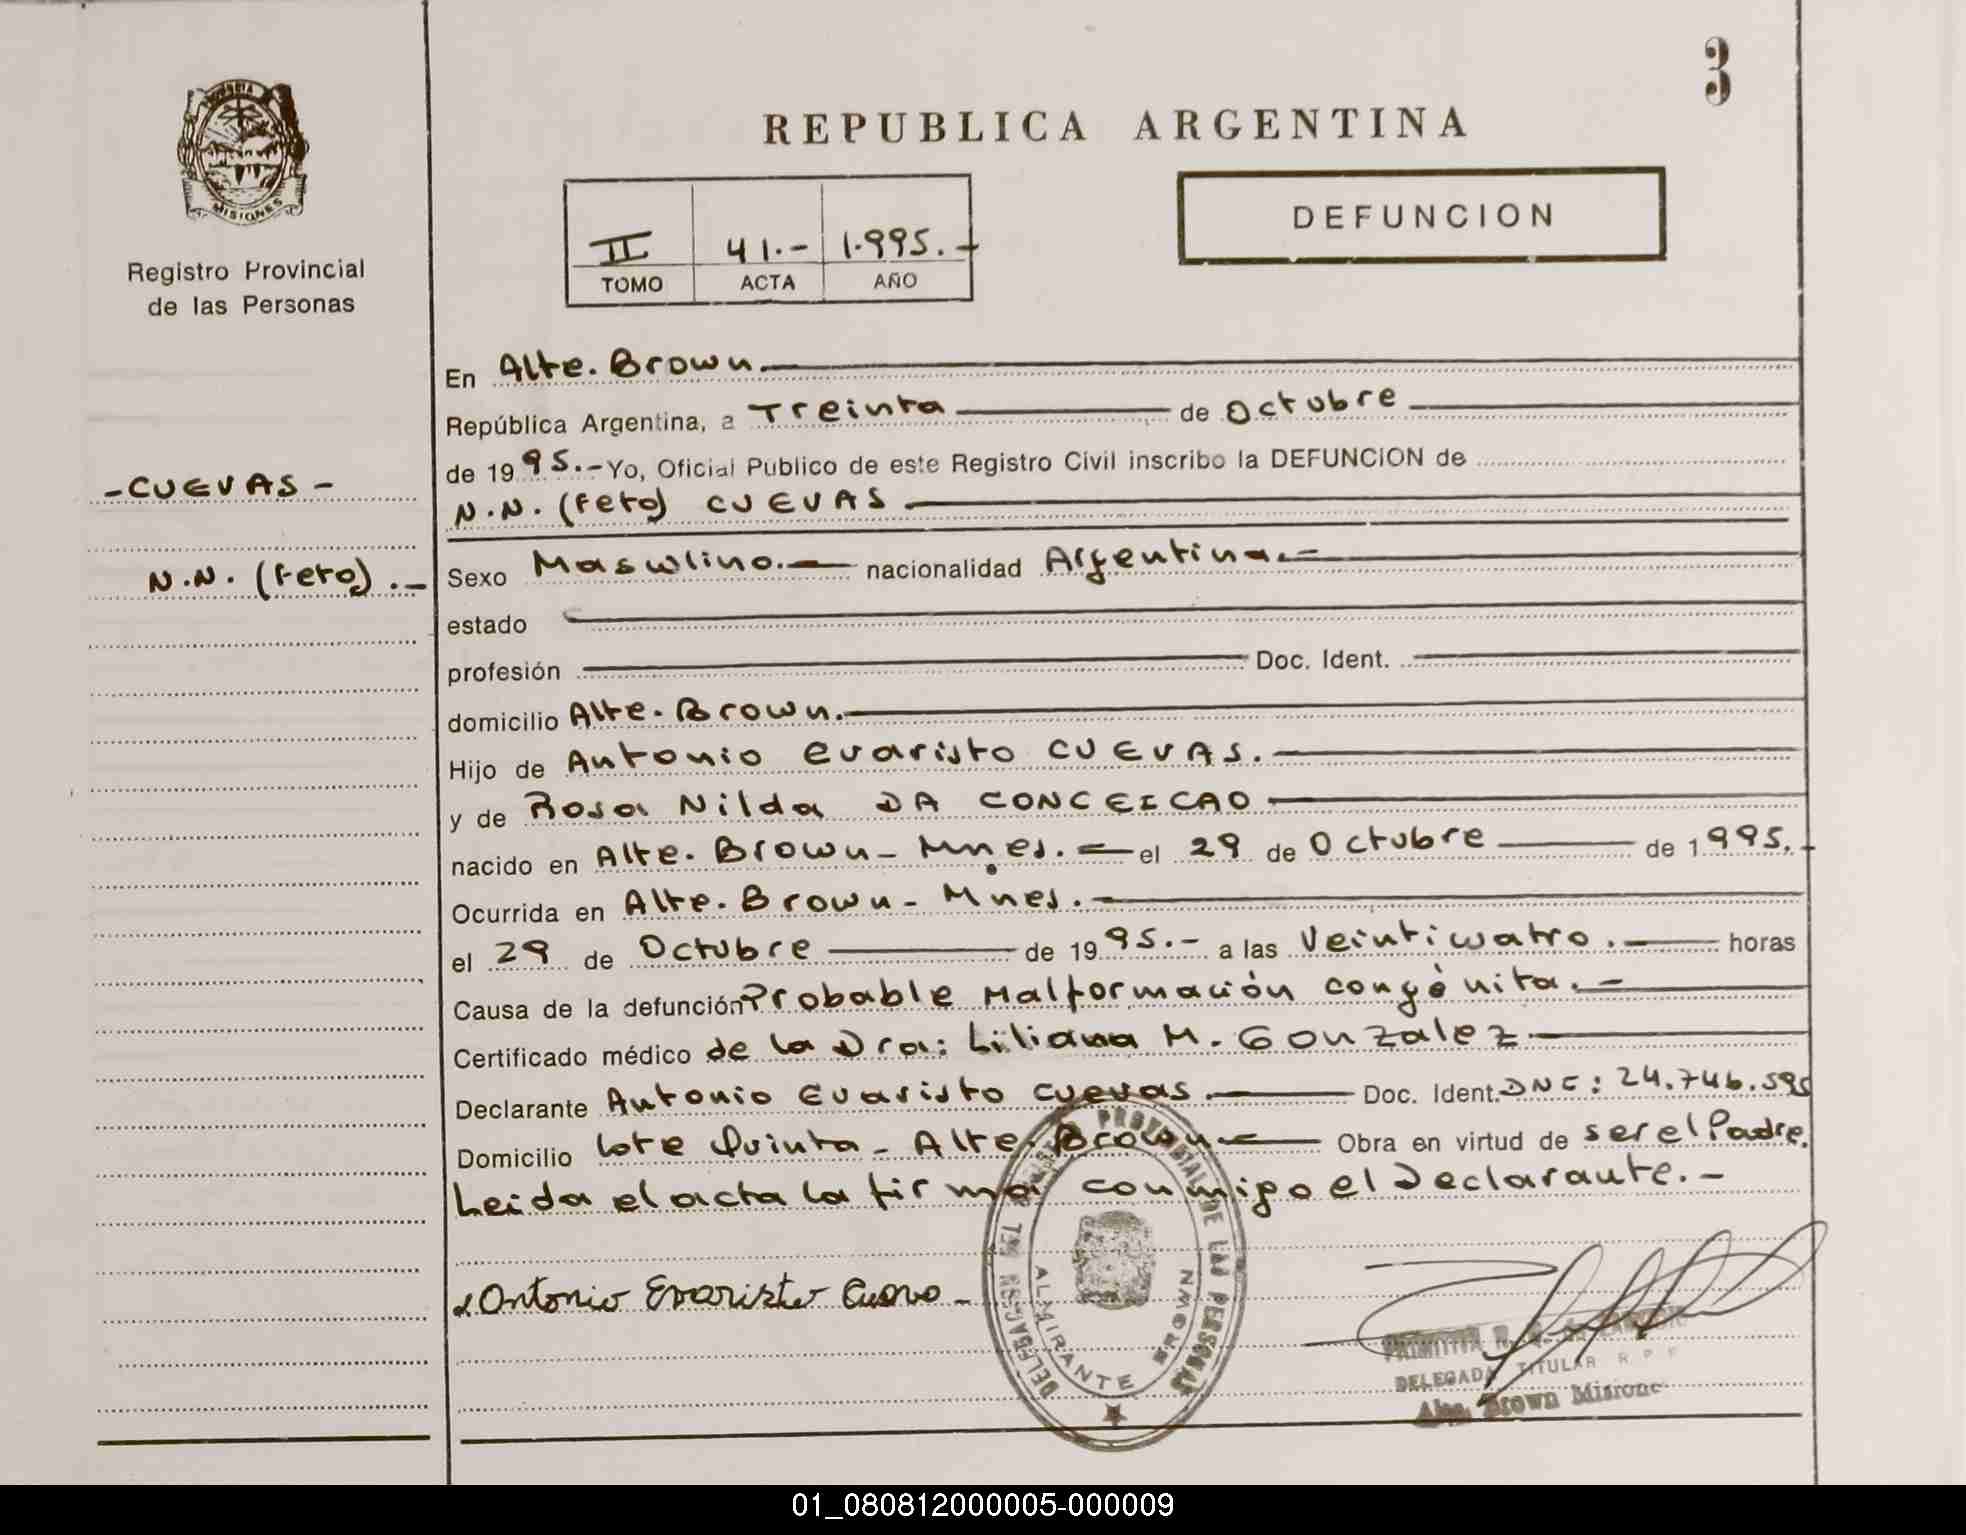 3
REPUBLICA ARGENTINA
MISIONES
Registro Provincial
de las Personas
II 41.- 1.995.-
TOMO ACTA AÑO
DEFUNCION
-CUEVAS-
N.N. (Feto).-
En Alte. Brown.
República Argentina, a Treinta de Octubre
de 1995.- Yo, Oficial Publico de este Registro Civil inscribo la DEFUNCION de
N.N. (Feto) CUEVAS
Sexo Masculino.- nacionalidad Argentina.-
estado
profesión Doc. Ident.
domicilio Alte. Brown.
Hijo de Antonio Evaristo CUEVAS.
y de Rosa Nilda DA CONCEICAO
nacido en Alte. Brown - Mnes. el 29 de Octubre de 1995.-
Ocurrida en Alte. Brown - Mnes.
el 29 de Octubre de 1995.- a las Veinticuatro. horas
Causa de la defunción Probable Malformación congénita.-
Certificado médico de la Dra: Liliana M. Gonzalez
Declarante Antonio Evaristo Cuevas. Doc. Ident. DNI: 24.746.595
Domicilio Lote Quinta - Alte. Brown.- Obra en virtud de ser el Padre.
Leida el acta la firma conmigo el Declarante.-
Antonio Evaristo
PROVINCIAL DE LAS PERSONAS
ALMIRANTE BROWN
DELEGADA TITULAR R P P
Alte. Brown Misiones
01_080812000005-000009